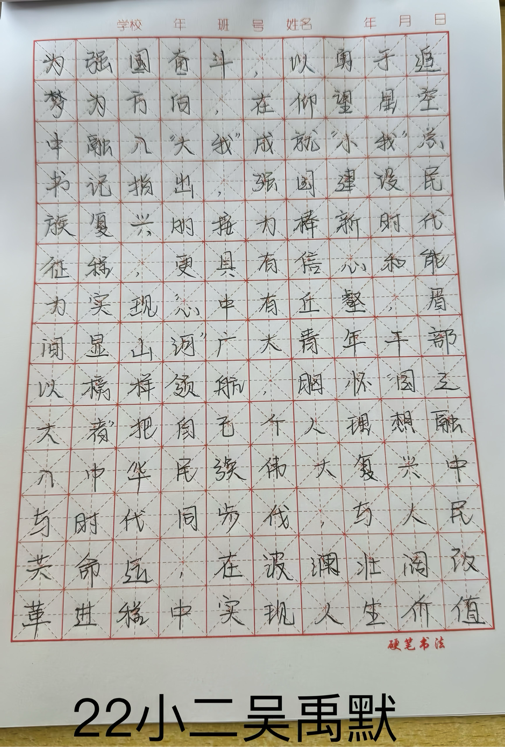 学校 年 班 号 姓名 年 月 日
为强国奋斗，以勇于追
梦为方向，在仰望星空
中融入“大我”成就“小我”总
书记指出，强国建设民
族复兴的接力棒新时代
征程，更具有信心和能
力实现“心中有丘壑，眉
间显山河”广大青年干部
以榜样领航，胸怀“国之
大者”把自己个人理想融
入中华民族伟大复兴中
与时代同步伐，与人民
共命运，在波澜壮阔改
革进程中实现人生价值
硬笔书法
22小二吴禹默